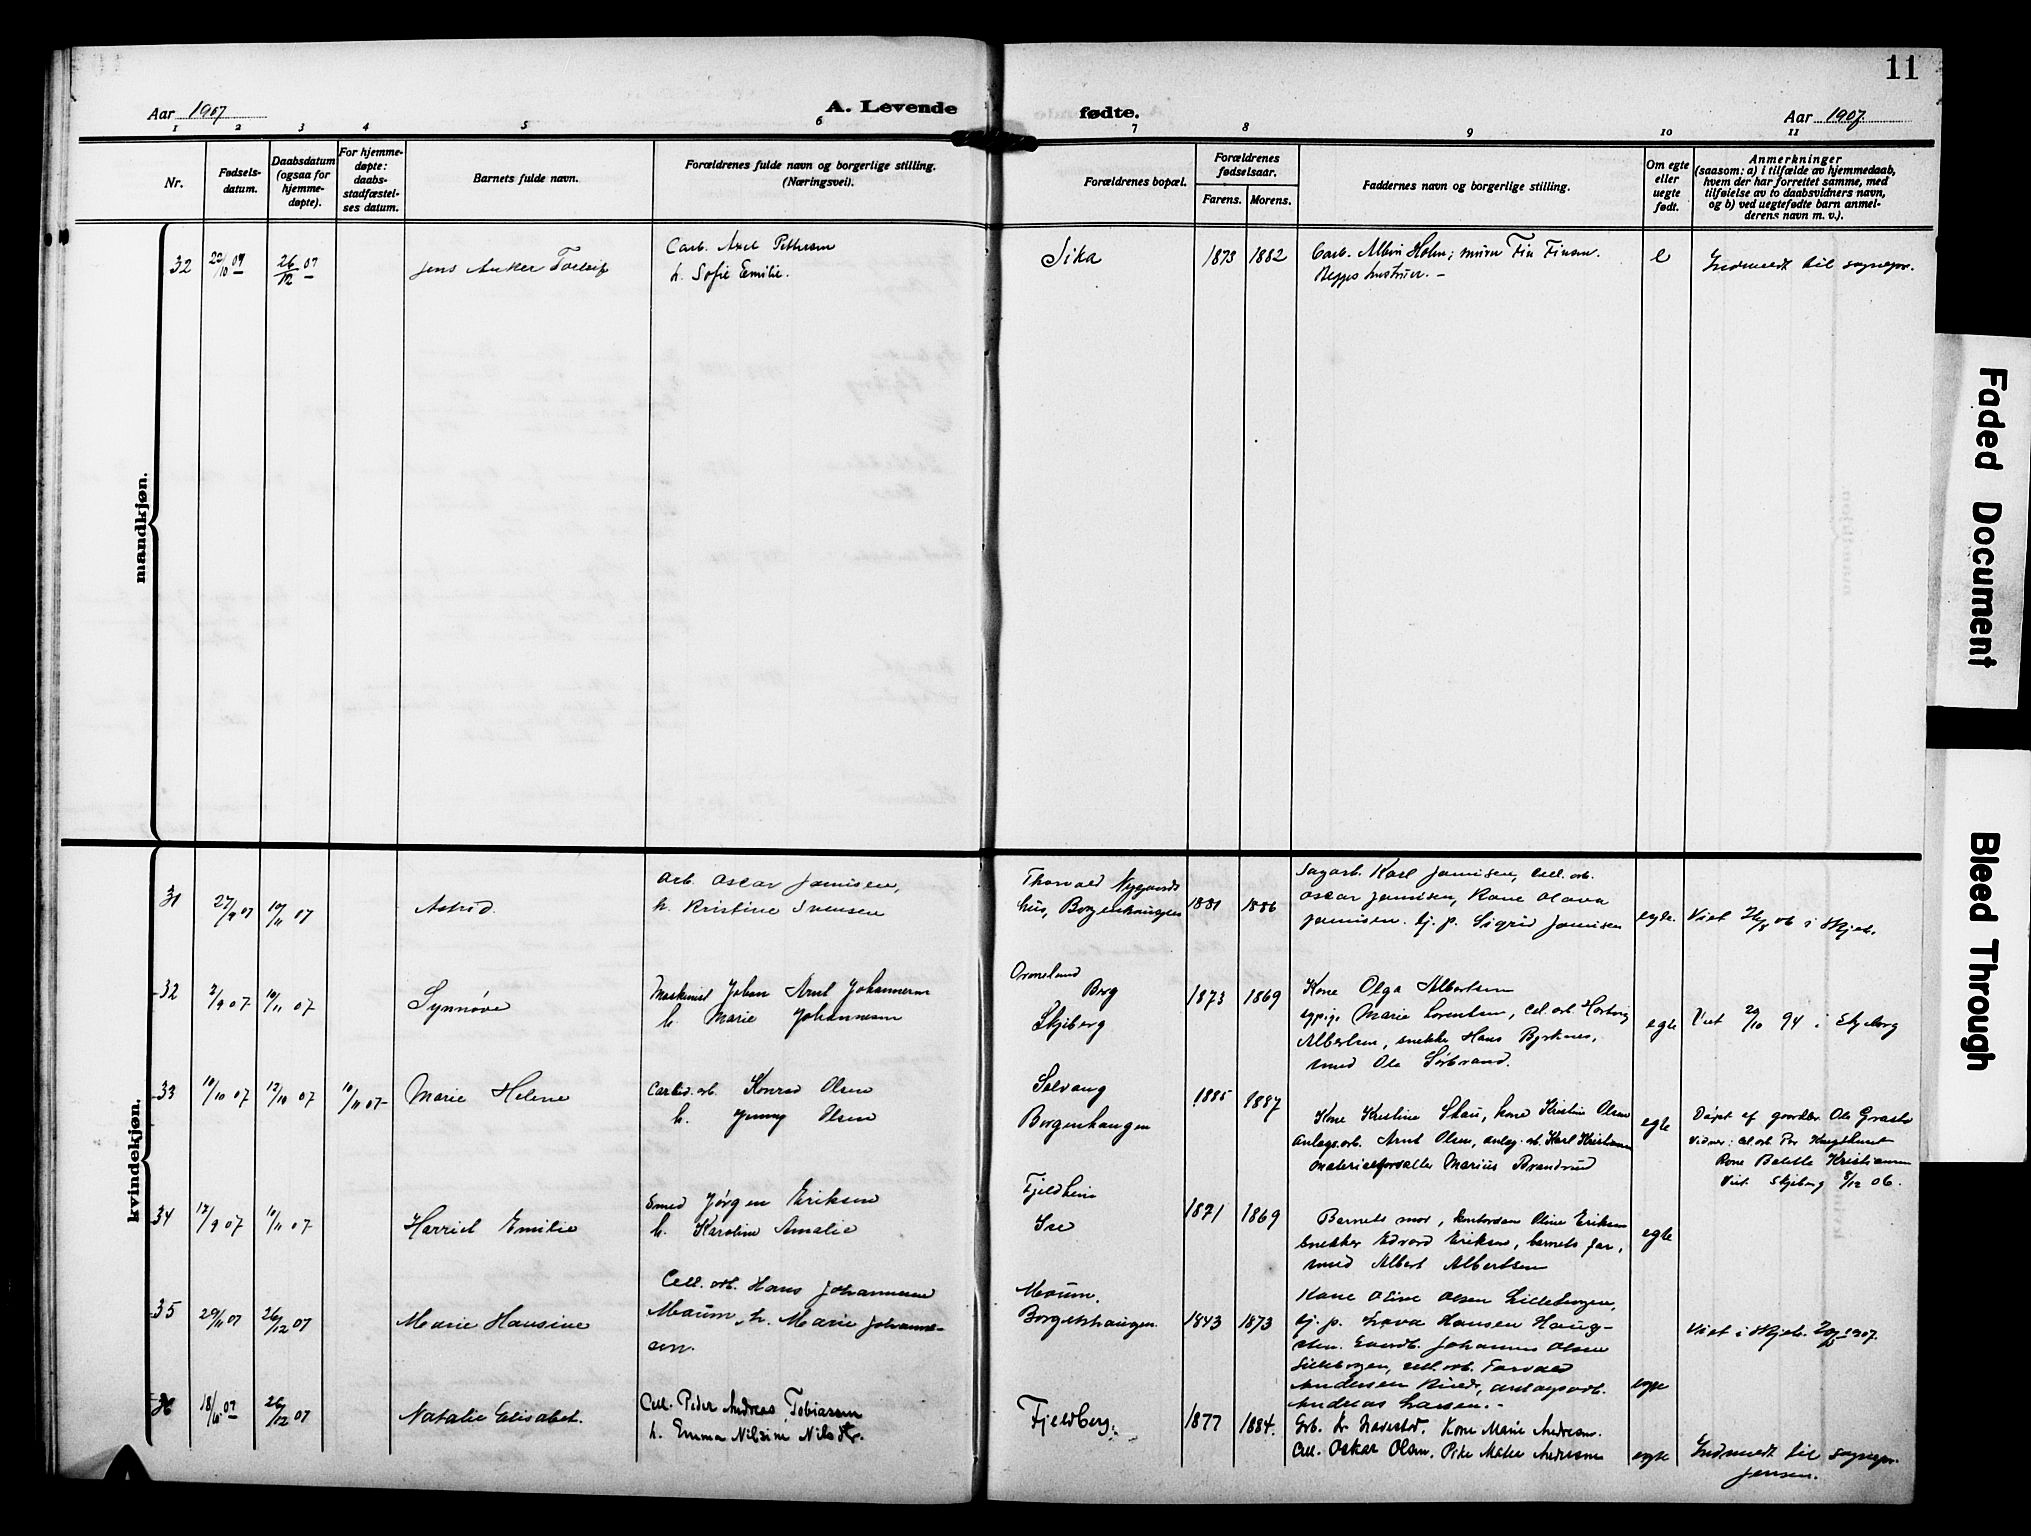 11
Aar 1907
A. Levende
fødte.
Aar 1907
1 2 3 4 5 6 7 8 9 10 11
Nr.
Fødsels-
datum.
Daabsdatum
(ogsaa for
hjemme-
døpte).
For hjemme-
døpte:
daabs-
stadfæstel-
ses datum.
Barnets fulde navn.
Forældrenes fulde navn og borgerlige stilling.
(Næringsvei).
Forældrenes bopæl.
Forældrenes
fødselsaar.
Farens. Morens.
Faddernes navn og borgerlige stilling.
Om egte
eller
uegte
født.
Anmerkninger
(saasom: a) i tilfælde av hjemmedaab,
hvem der har forrettet samme, med
tilføielse av to daabsvidners navn,
og b) ved uegtefødte barn anmel-
derens navn m. v.).
mandkjøn.
32
22/10 07
26/12 07
Jens Anker
Carb. Axel Pettersen
h. Sofie Emilie.
Sika
1873 1882
Carb. Albin Holm; murer Fin Finsen.
Begges hustruer. -
e
Indmeldt til sognepr.
kvindekjøn.
31
27/9 07
10/11 07
Astrid.
Arb. Oscar Jamissen,
h. Kristine Svensen
Thorvald Nygaards
hus, Borgenhaugen
1881 1886
Sagarb. Karl Jamissen, cell. arb.
Oscar Jamissen, Kone Olava
Jamissen. tj. p. Sigrid Jamissen
egte.
Viet 26/8 06 i Skjeb.
32
2/9 07
10/11 07
Synnøve
Maskinist Johan Arnt Johannesen
h. Marie Johannesen
Ormeland
Borg
Skjeberg
1873 1869
Kone Olga Albertsen
Marie Lorentsen, cel. arb. Hartvig
Albertsen, snekker Hans
smed Ole Sørbrand.
egte
Viet 29/10 94 i Skjeberg
33
10/10 07
12/10 07
10/11 07
Marie Helene
Carbid. arb. Konrad Olsen
h. Jenny Olsen
Solvang
Borgenhaugen
1885 1887
Kone Kristine Skau, kone Kristine Olsen
anlegsarb. Arnt Olsen, anleg. arb. Karl Kristiansen
materialforvalter Marius Brandrud
egte
Døpt af gaardbr. Ole Grasto
Vidner: cel. arb. Per
Kone Balette Kristiansen
Viet. Skjeberg 8/12 06.
34
12/9 07
10/11 07
Harriet Emilie
Smed Jørgen Eriksen
h. Karoline Amalie
Fjeldheim
Ise
1871 1869
Barnets mor, Oline Eriksen
snekker Edvard Eriksen, barnets far,
smed Albert Albertsen
egte
35
29/11 07
26/12 07
Marie Hansine
Cell. arb. Hans Johannesen
Moum, h. Marie Johannes-
sen.
Moum.
Borgenhaugen.
1843 1873
Kone Oline Olsen Lilleborgen,
tj. p. Hansen Haug-
sten. Gaardb. Johannes Olsen
Lilleborgen, cell. arb. Torvald
Andersen anlegsarb.
Andreas Larsen. -
egte
Viet i Skjeb. 1907.
36
18/11 07
26/12 07
Natalie Elisabet.
Cell. Peder Andreas Tobiassen
h. Emma Nilsine Nilsdtr.
Fjeldberg.
1877 1884.
Grb. Kone Marie Andresen.
Cell. Oskar Olsen. Pike Mathe Andersen
egte
Indmeldt til sognepr.
Jensen.
Faded Document
Bleed Through